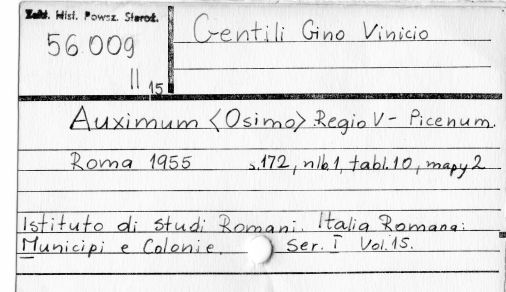 Zakł. Hist. Powsz. Staroż.
56.009
II 15
Gentili Gino Vinicio
Auximum <Osimo> Regio V - Picenum.
Roma 1955 s.172, nlb.1, tabl.10, mapy 2
Istituto di studi Romani. Italia Romana:
Municipi e Colonie. Ser. I Vol. 15.